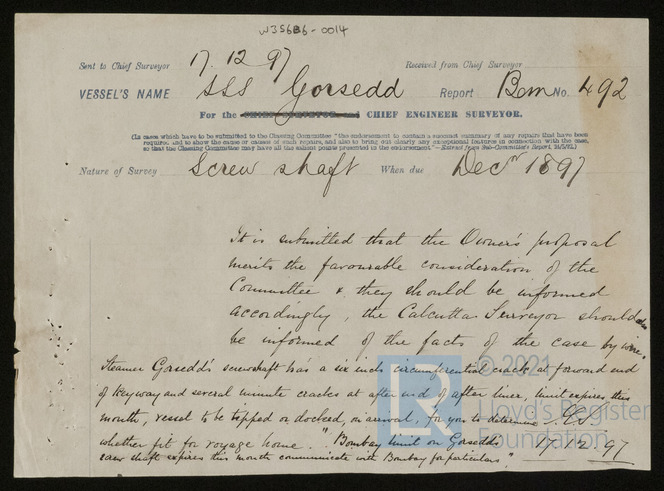 W35686-0014
Sent to Chief Surveyor 17.12.97 Received from Chief Surveyor
VESSEL'S NAME SSS Gorsedd Report Bom No. 492
For the CHIEF SURVEYOR and CHIEF ENGINEER SURVEYOR.
(In cases which have to be submitted to the Classing Committee "the endorsement to contain a succinct summary of any repairs that have been
required and to show the cause or causes of such repairs, and also to bring out clearly any exceptional features in connection with the case,
so that the Classing Committee may have all the salient points presented in the endorsement."—Extract from Sub-Committee's Report
Nature of Survey Screw shaft When due Decr 1897
It is submitted that the Owner's proposal
merits the favourable consideration of the
Committee & they should be informed
accordingly, the Calcutta Surveyor should also
be informed of the facts of the case by wire.
"Steamer Gorsedd's screwshaft has a six inch circumferential crack at forward end
of keyway and several minute cracks at after end of after liner, limit expires this
month, vessel to be tipped or docked, on arrival, for you to determine
whether fit for voyage home." "Bombay limit on Gorsedd's 17.12.97
screw shaft expires this month communicate with Bombay for particulars".
© 2021
Lloyd's Register
Foundation